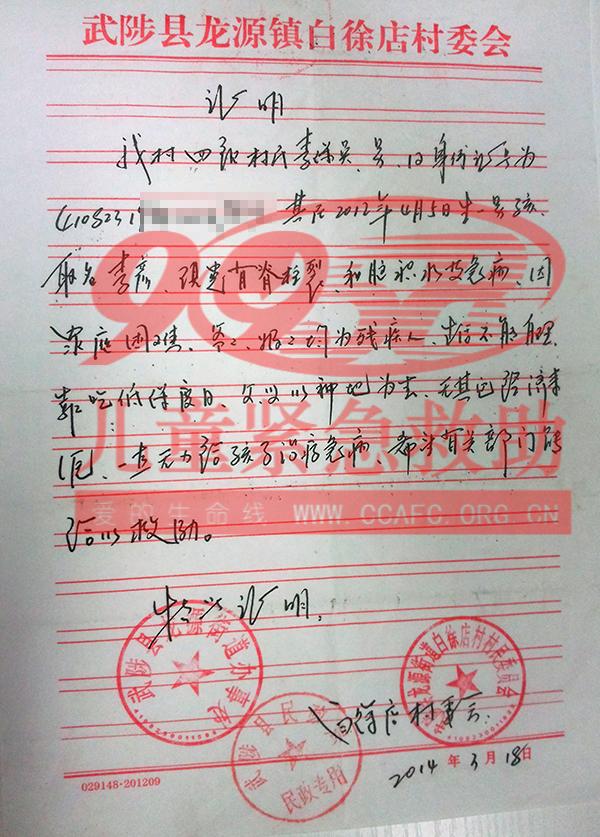 武陟县龙源镇白徐店村委会
证明
我村四组村民李 男,身份证号为
410823 其在2012年4月5日生一男孩
取名李彦,现患有脊柱裂、和脑积水及急病,因
家庭困难,爷爷、奶奶均为残疾人,生活不能自理
靠吃低保度日,父母以种地为主,无其它经济来
源,一直无力给孩子治疗急病,希望有关部门能
给以救助。
特此证明。
白徐店村委会
2014年3月18日
武陟县龙源街道办事处
武陟县民政局
民政专用
龙源街道白徐店村村民委员会
029148-201209
99
儿童紧急救助
爱的生命线 WWW.CCAFC.ORG.CN